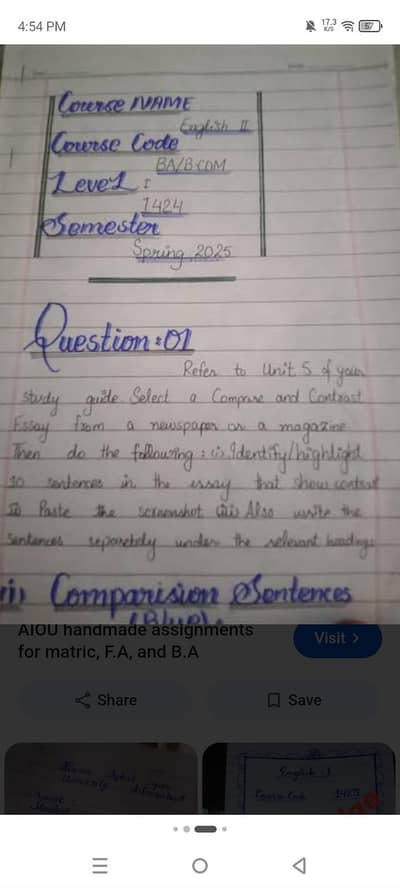 4:54 PM
17.3
K/S
57
Course NAME
English II
Course Code
BA/B.COM
Level :
1424
Semester
Spring, 2025
Question:01
Refer to Unit 5 of your
study guide Select a Compare and Contrast
Essay from a newspaper or a magazine.
Then do the following: (i) Identify/highlight
10 sentences in the essay that show contrast
Paste the screenshot (iii) Also write the
sentences separetely under the relevant headings
ii) Comparision Sentences
(Blue).
AIOU handmade assignments
for matric, F.A, and B.A
Visit >
Share
Save
English - I
Course Code 1423